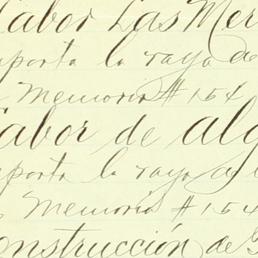 Labor Las Mer
mporta la raya de
Memoria # 164
Labor de alg
mporta la raya d
Memoria # 164
Construcción de G